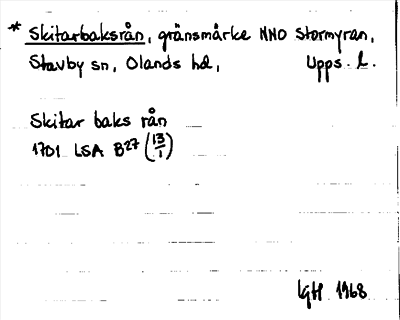 * Skitarbaksrån, gränsmärke NNO Stormyran,
Stavby sn, Olands hd, Upps. l.
Skitar baks rån
1701 LSA B27 (13/1)
LgH 1968